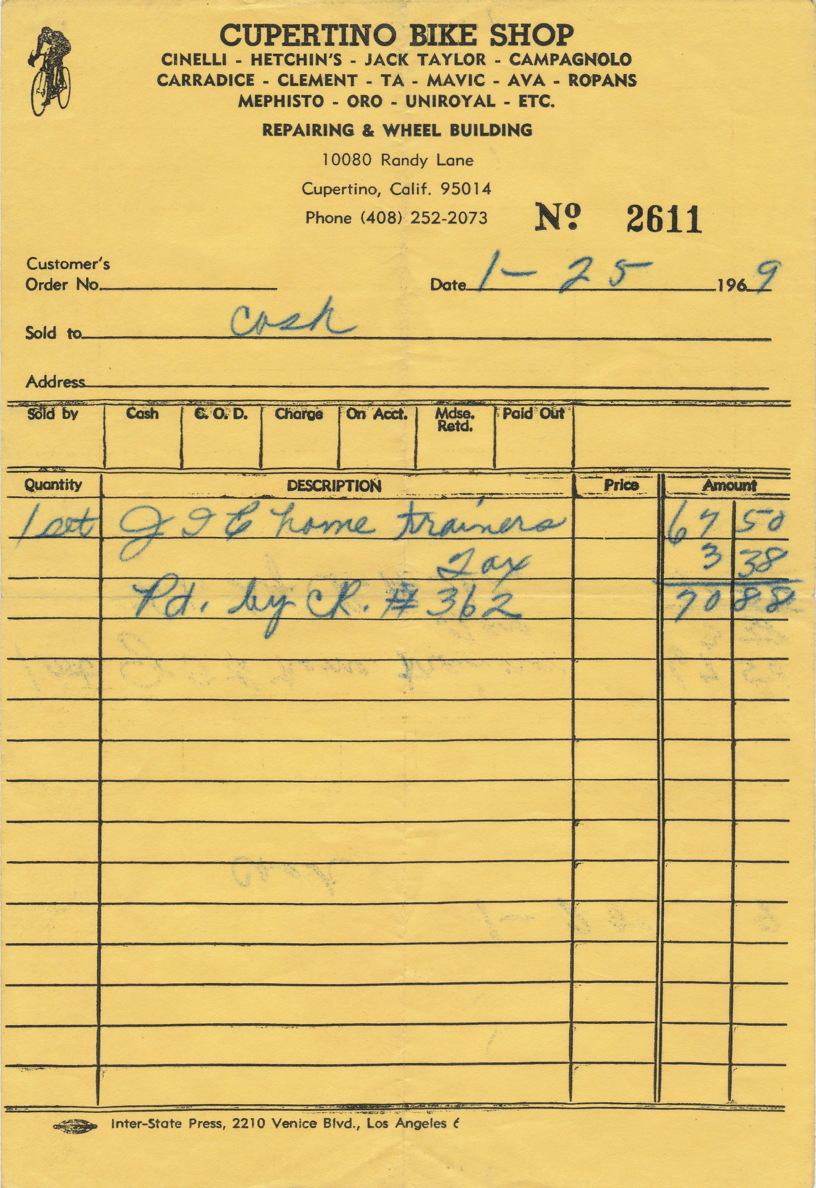 CUPERTINO BIKE SHOP
CINELLI - HETCHIN'S - JACK TAYLOR - CAMPAGNOLO
CARRADICE - CLEMENT - TA - MAVIC - AVA - ROPANS
MEPHISTO - ORO - UNIROYAL - ETC.
REPAIRING & WHEEL BUILDING
10080 Randy Lane
Cupertino, Calif. 95014
Phone (408) 252-2073 Nº 2611
Customer's
Order No. Date 1 - 25 1969
Sold to cash
Address
Sold by Cash C. O. D. Charge On Acct. Mdse. Retd. Paid Out
Quantity DESCRIPTION Price Amount
1 set home trainers 67 50
Tax 3 38
Pd. by CK. # 362 70 88
Inter-State Press, 2210 Venice Blvd., Los Angeles 6